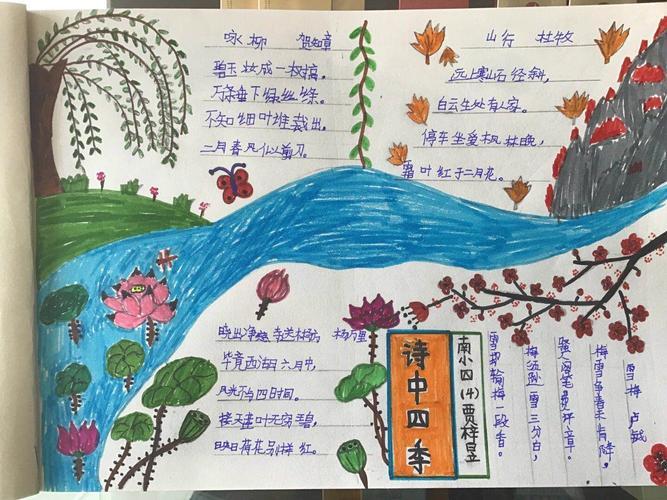 咏柳 贺知章
碧玉妆成一树高。
万条垂下绿丝绦。
不知细叶谁裁出,
二月春风似剪刀。
山行 杜牧
远上寒山石径斜,
白云生处有人家。
停车坐爱枫林晚,
霜叶红于二月花。
晓出净慈寺送林子方 杨万里
毕竟西湖六月中
风光不与四时同。
接天莲叶无穷碧,
映日荷花别样红。
诗中四季
南小四(4)贾梓昱
雪梅 卢钺
梅雪争春未肯降,
骚人阁笔费评章。
梅须逊雪三分白,
雪却输梅一段香。